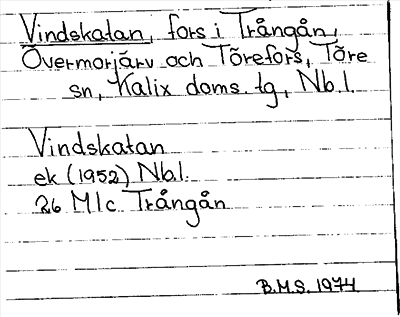 Vindskatan, fors i Trångån,
Övermorjärv och Törefors, Töre
sn, Kalix doms. tg, Nb.l.
Vindskatan
ek (1952) Nb.l.
26 M l c Trångån
B.M.S. 1974